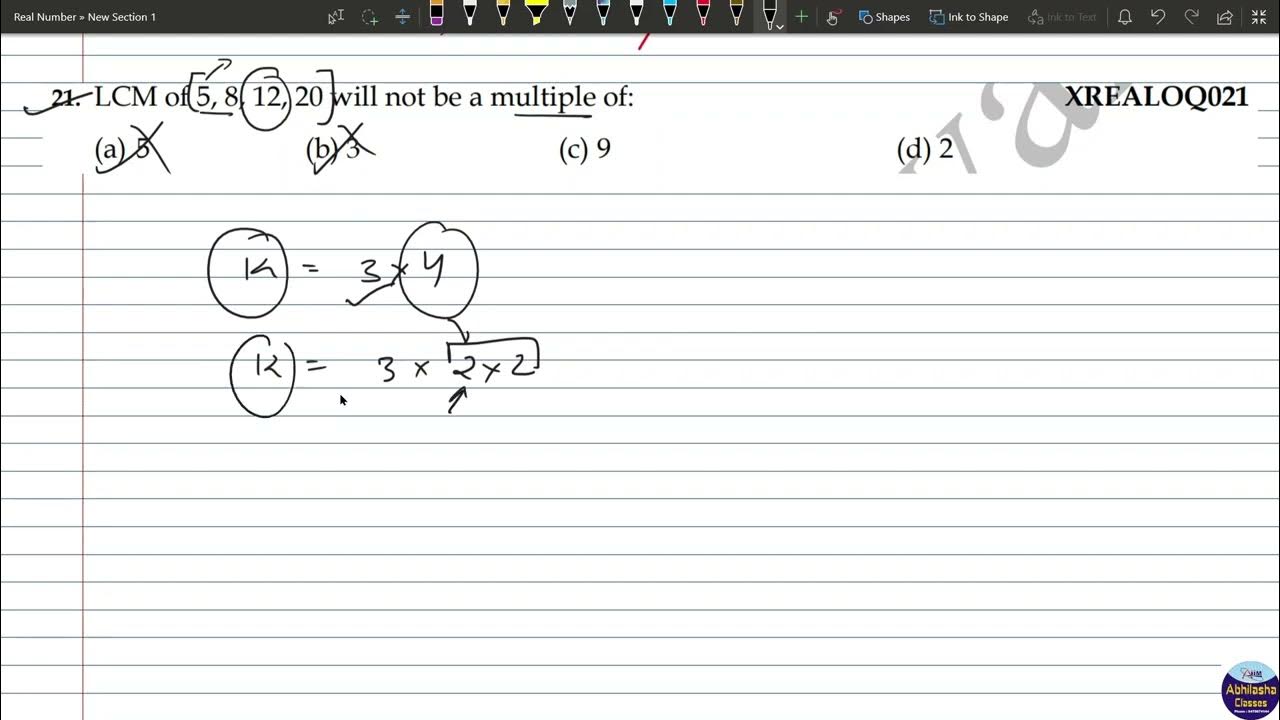 Real Number » New Section 1
Shapes
Ink to Shape
Ink to Text
21. LCM of [5, 8, 12, 20] will not be a multiple of:
XREALOQ021
(a) 5
(b) 3
(c) 9
(d) 2
12 = 3 × 4
12 = 3 × 2 × 2
Abhilasha
Classes